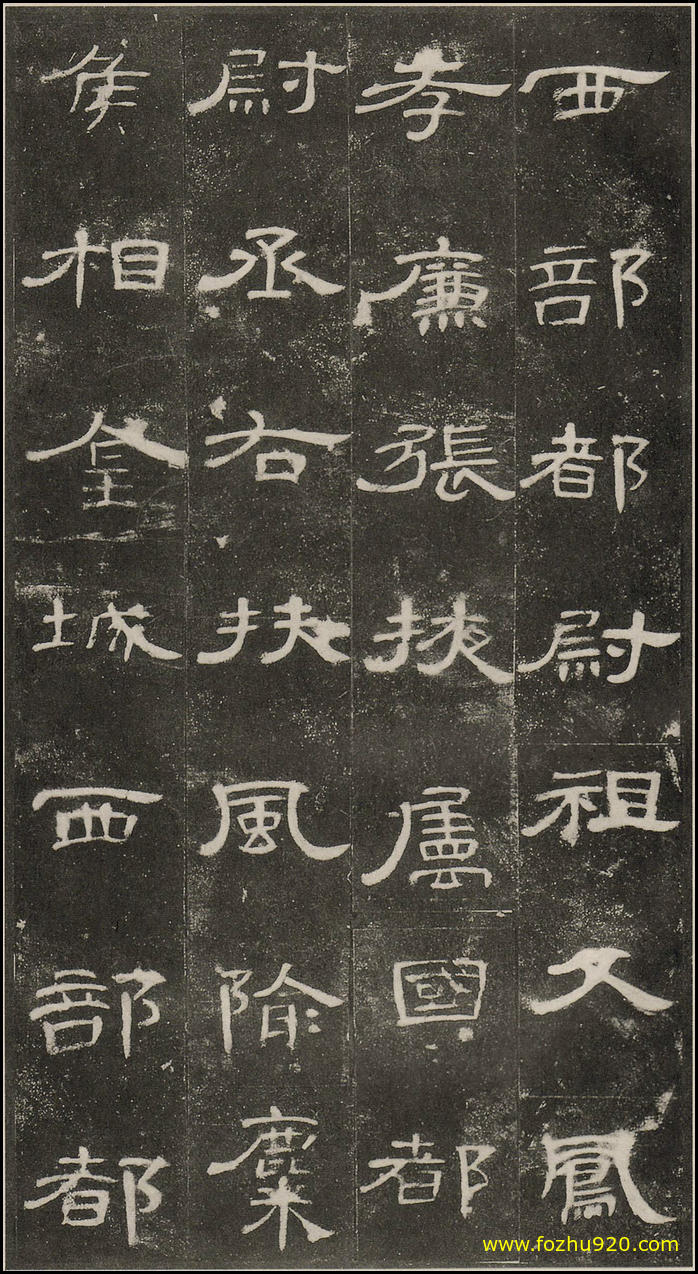 西部都尉祖父鳳
孝廉張掖屬國都
尉丞右扶風隃麋
侯相金城西部都
www.fozhu920.com